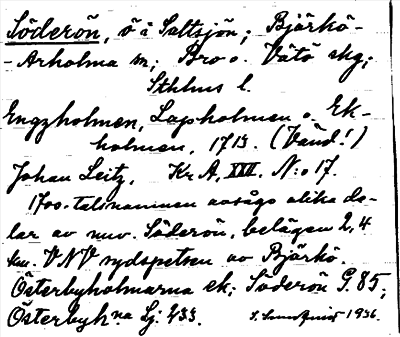 Söderön, ö i Saltsjön; Björkö-
-Arholma sn; Bro o. Vätö skg;
Sthlms l.
Engzholmen, Lapholmen o. Ek-
holmen, 1713. (Vänd!)
Johan Leitz, Kr A, XVI. N:o 17.
1700-talsnamnen avsågo olika de-
lar av nuv. Söderön, belägen 2,4
km. VNV nydspetsen av Björkö.
Österbyholmarna ek; Söderön G. 85;
Österbyh:na Lj. 233. 1936.